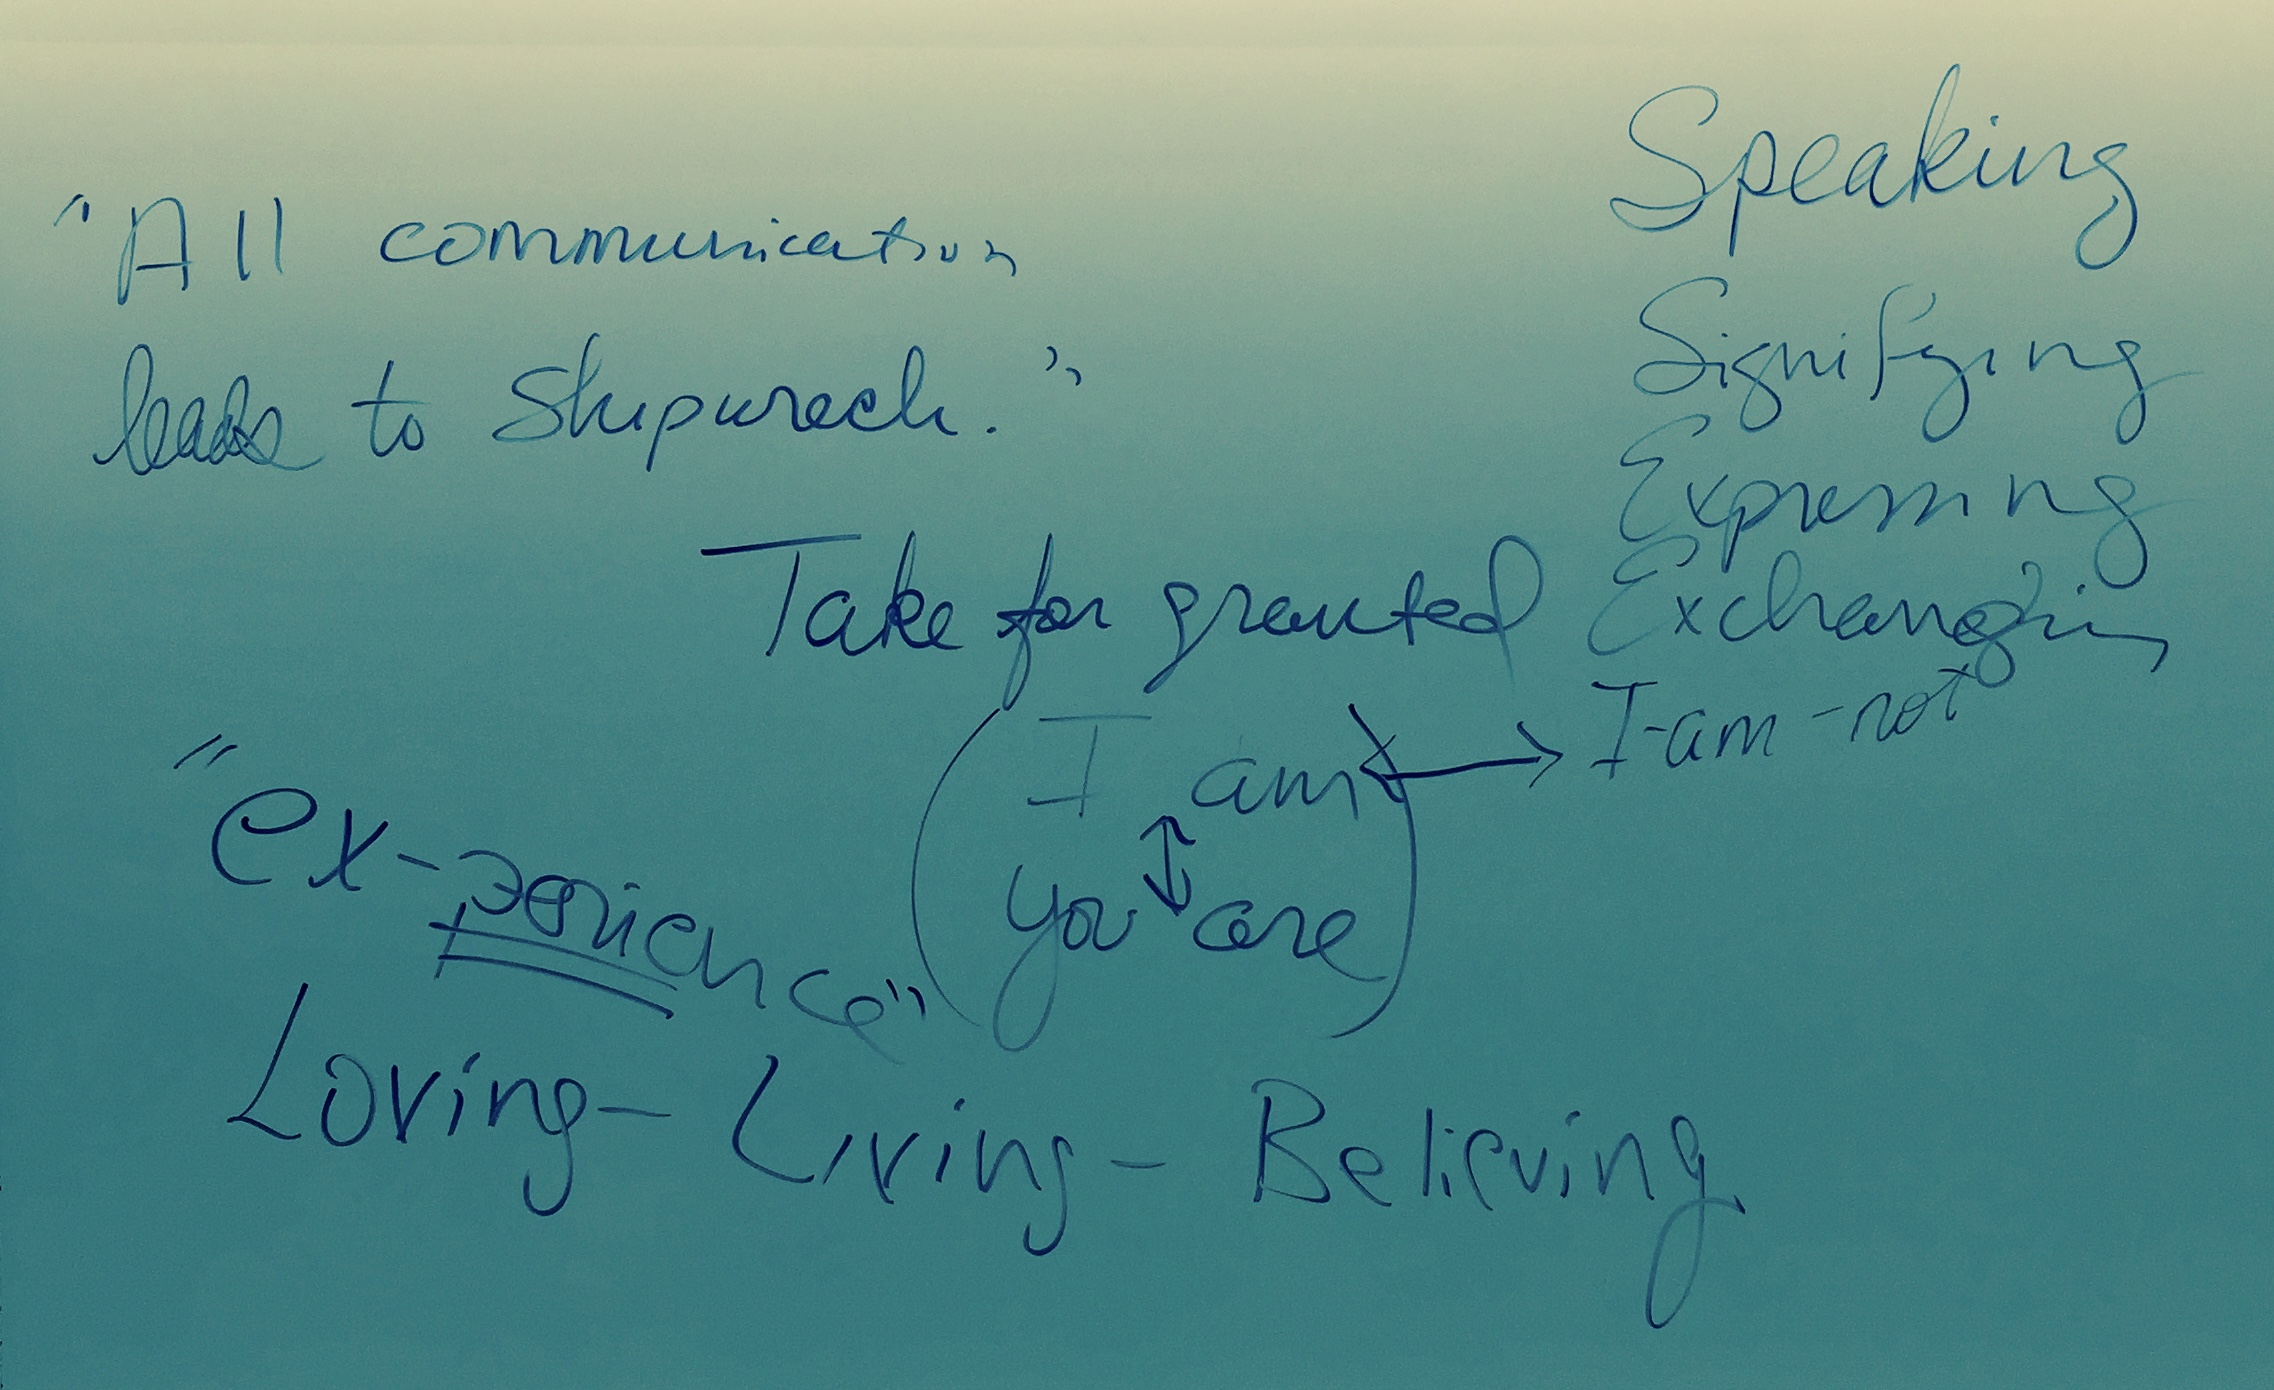 "All communication
leads to Shipwreck."
Speaking
Signifying
Expressing
Exchanging
Take for granted
(I am ↔ I-am-not
↕
you are)
"ex-perience"
Loving - Living - Believing